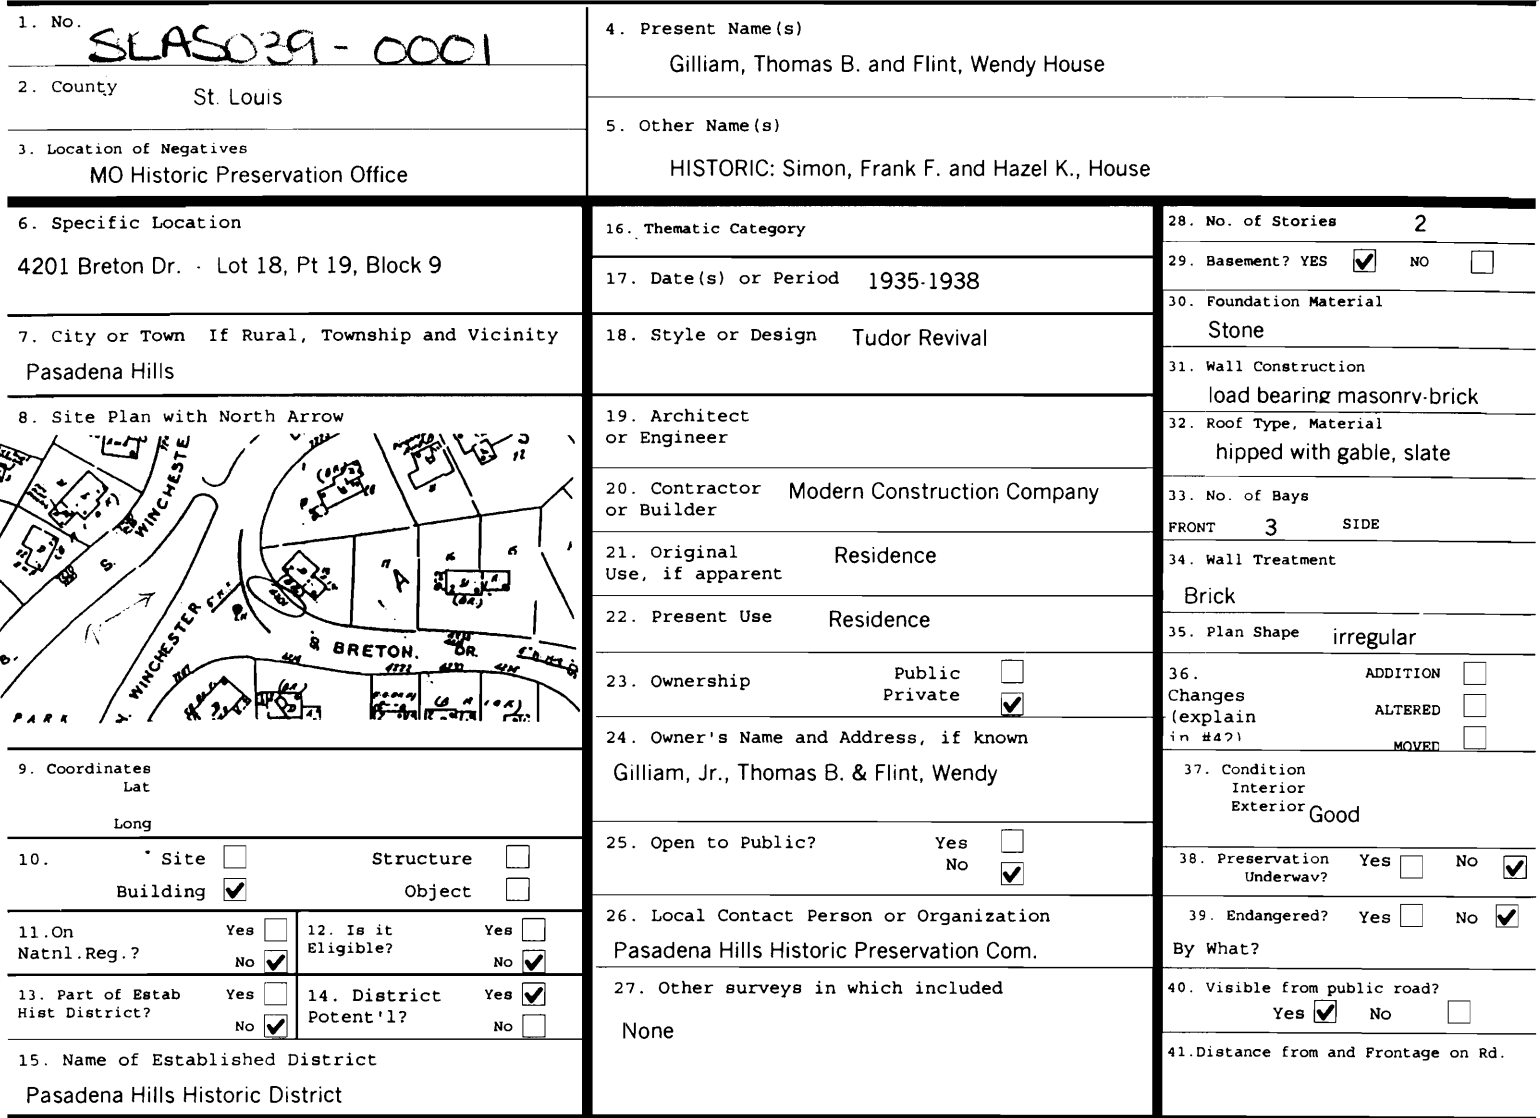 1. No. SLAS039 - 0001
2. County St. Louis
3. Location of Negatives
MO Historic Preservation Office
4. Present Name(s)
Gilliam, Thomas B. and Flint, Wendy House
5. Other Name(s)
HISTORIC: Simon, Frank F. and Hazel K., House
6. Specific Location
4201 Breton Dr. - Lot 18, Pt 19, Block 9
7. City or Town If Rural, Township and Vicinity
Pasadena Hills
8. Site Plan with North Arrow
WINCHESTE
S.
WINCHESTER
BRETON. DR.
PARK
A
9. Coordinates
Lat
Long
10. Site Structure
Building Object
11.On Natnl.Reg.? Yes
No
12. Is it Eligible? Yes
No
13. Part of Estab Hist District? Yes
No
14. District Potent'l? Yes
No
15. Name of Established District
Pasadena Hills Historic District
16. Thematic Category
17. Date(s) or Period 1935-1938
18. Style or Design Tudor Revival
19. Architect
or Engineer
20. Contractor Modern Construction Company
or Builder
21. Original Residence
Use, if apparent
22. Present Use Residence
23. Ownership Public
Private
24. Owner's Name and Address, if known
Gilliam, Jr., Thomas B. & Flint, Wendy
25. Open to Public? Yes
No
26. Local Contact Person or Organization
Pasadena Hills Historic Preservation Com.
27. Other surveys in which included
None
28. No. of Stories 2
29. Basement? YES NO
30. Foundation Material
Stone
31. Wall Construction
load bearing masonry-brick
32. Roof Type, Material
hipped with gable, slate
33. No. of Bays
FRONT 3 SIDE
34. Wall Treatment
Brick
35. Plan Shape irregular
36. ADDITION
Changes
(explain ALTERED
in #42) MOVED
37. Condition
Interior
Exterior Good
38. Preservation Yes No
Underway?
39. Endangered? Yes No
By What?
40. Visible from public road?
Yes No
41.Distance from and Frontage on Rd.